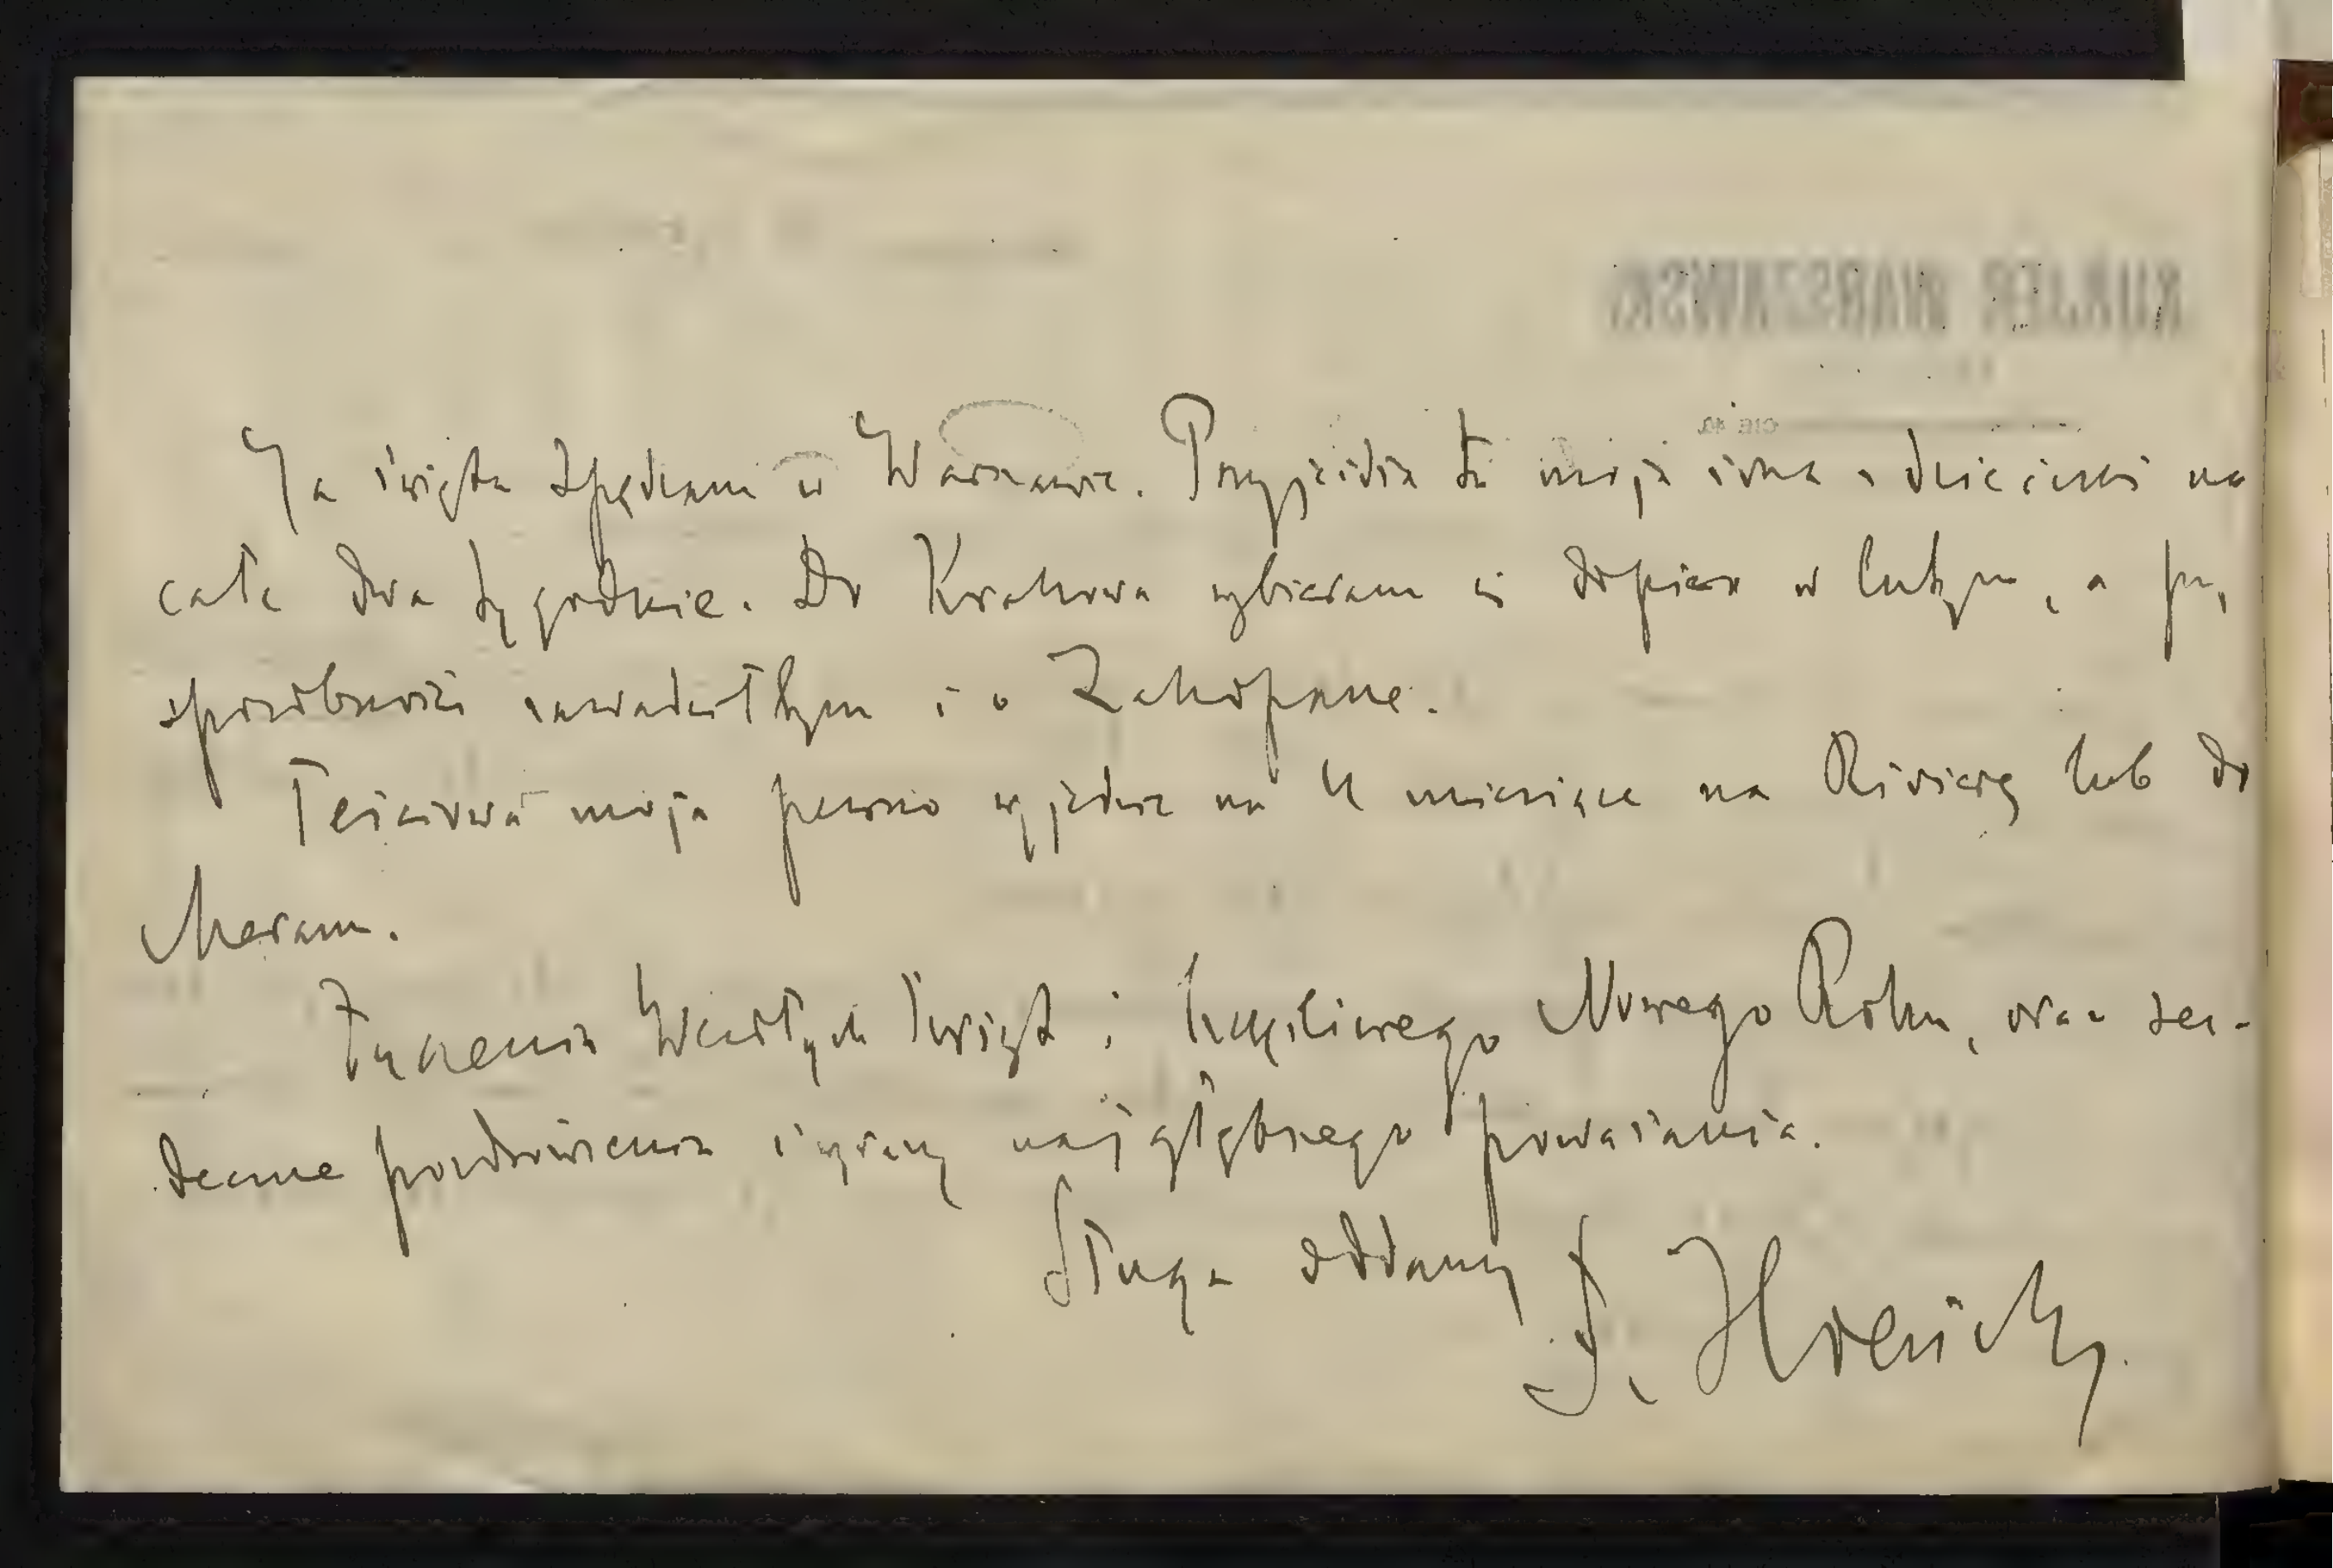 Ja święta spędzam w Warszawie. Przyjeżdża tu moja żona z dziećmi na
całe dwa tygodnie. Do Krakowa wybieram się dopiero w lutym, a przy
sposobności zawadziłbym i o Zakopane.
Teściowa moja pewno wyjedzie na 4 miesiące na Rivierę lub do
Meranu.
Życzenia Wesołych Świąt i szczęśliwego Nowego Roku, oraz ser-
deczne pozdrowienia i wyrazy najgłębszego poważania.
Sługa oddany F. Hoesick
KURJER WARSZAWSKI